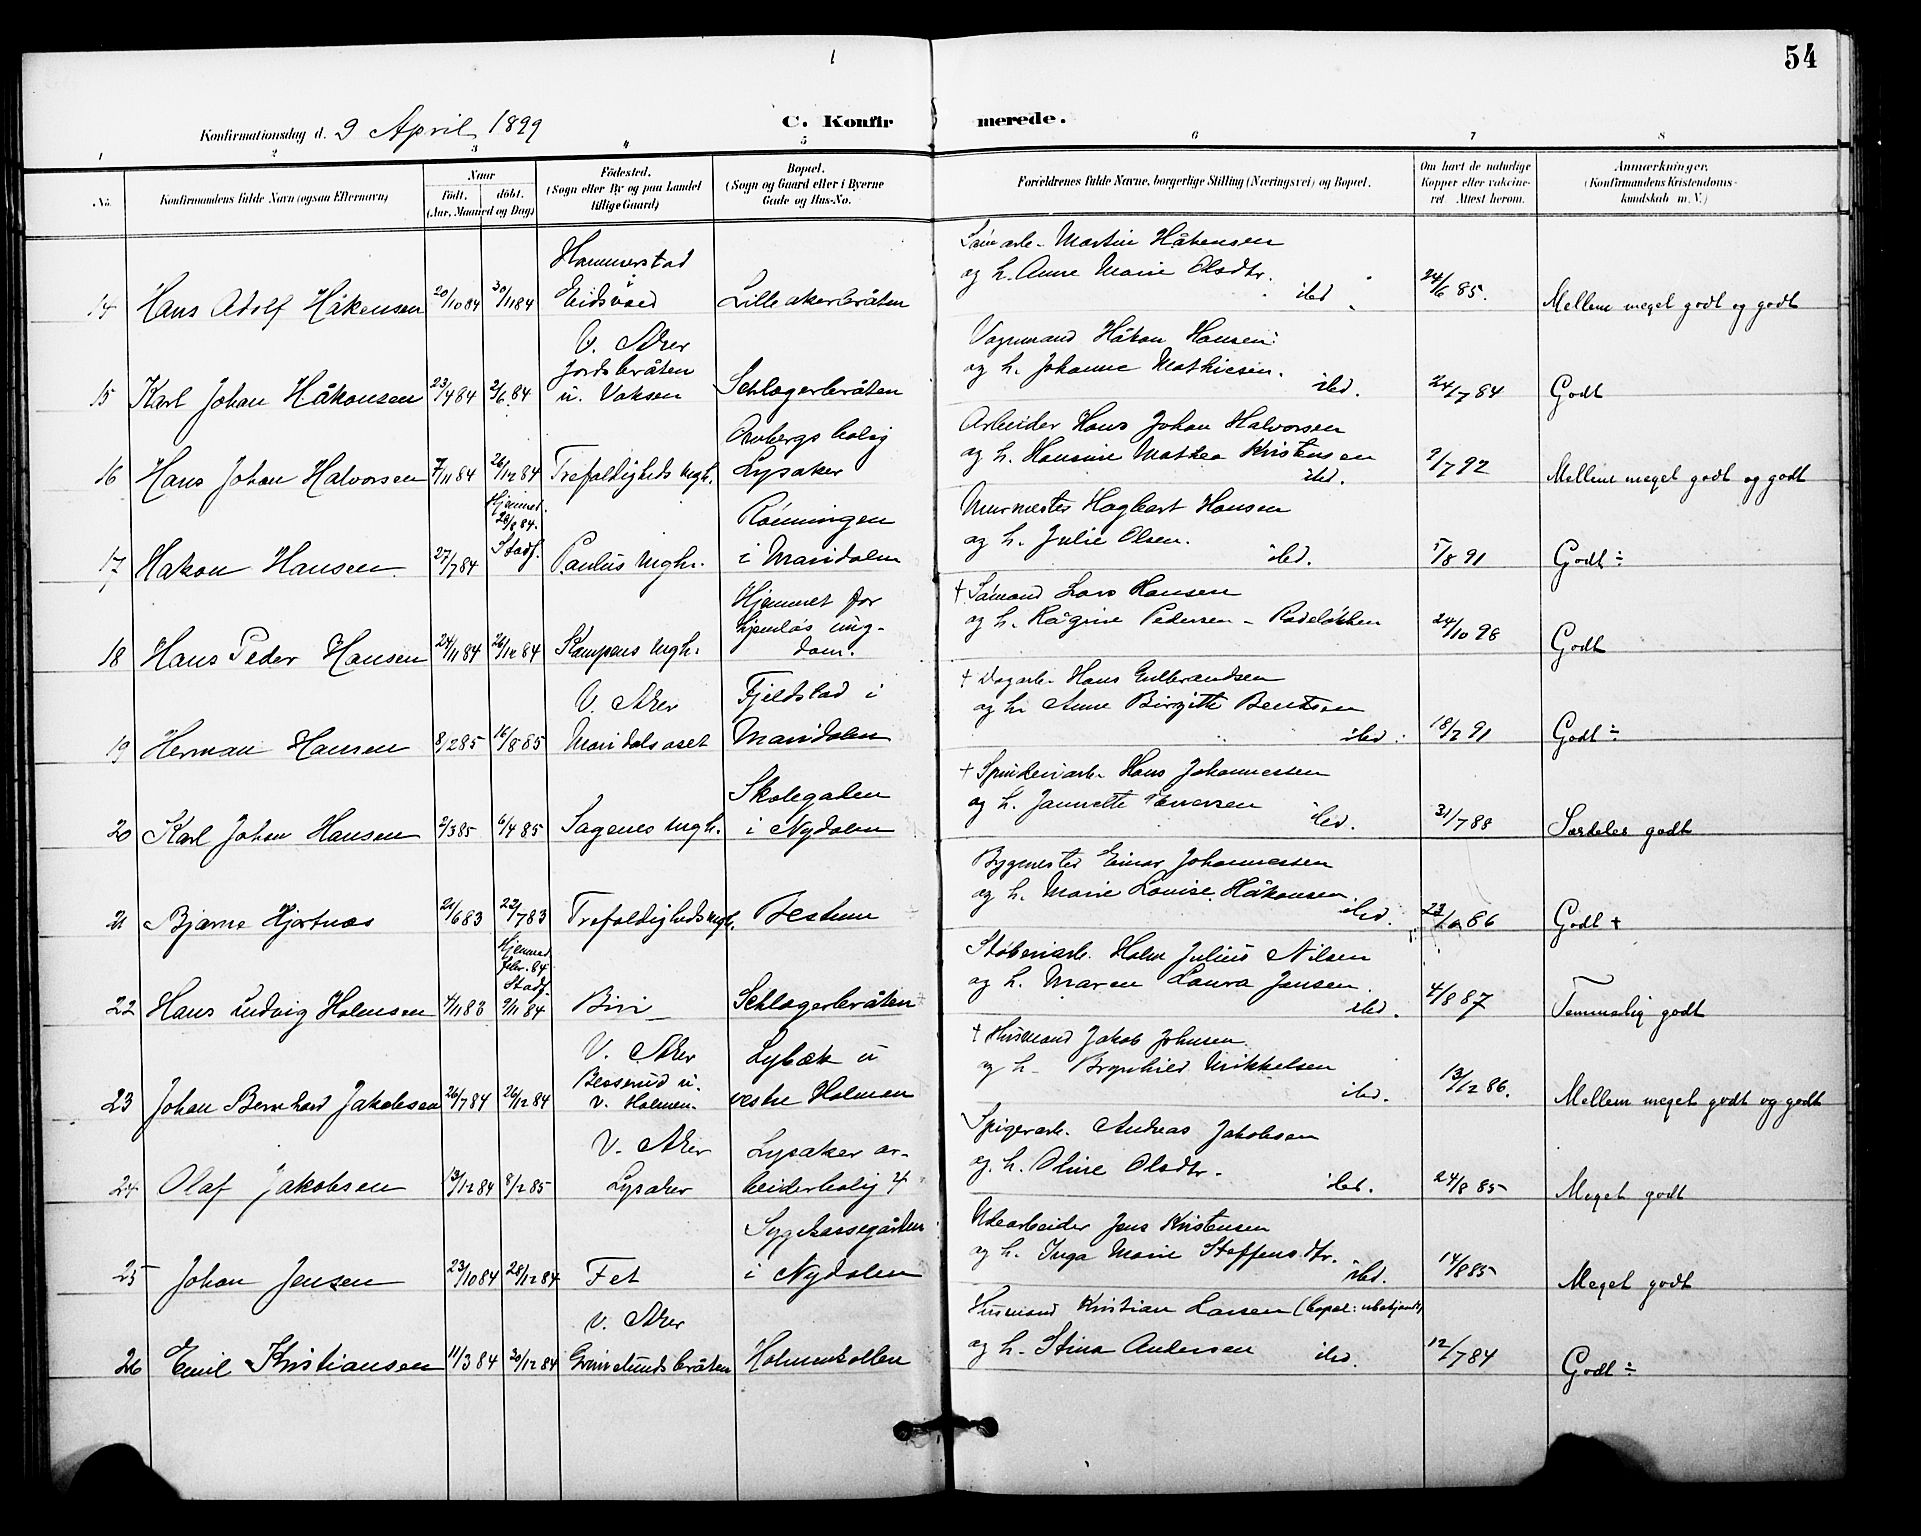 54
Konfirmationsdag d. 9 April 1899
C. Konfirmerede.
1 2 3 4 5 6 7 8
No.
Konfirmandens fulde Navn (ogsaa Efternavn)
Naar
født. døbt.
(Aar, Maaned og Dag)
Fødested.
(Sogn eller By og paa Landet
tillige Gaard)
Bopæl.
(Sogn og Gaard eller i Byerne
Gade og Hus-No.
Forældrenes fulde Navne, borgerlige Stilling (Næringsvei) og Bopæl.
Om havt de naturlige
Kopper eller vakcine-
ret Attest herom.
Anmærkninger.
(Konfirmandens Kristendoms-
kundskab m. V.)
Hammerstad
Martin Håkensen
og h. Anne Marie Olsdtr.
14 Hans Adolf Håkensen 20/10 84 30/11 84 Eidsvold Lilleakerbråten ibd. 24/6 85. Mellem meget godt og godt
V. Aker
Jordsbråten
Vognmand Håkon Hansen
og h. Johanne Mathiesen.
15 Karl Johan Håkonsen 23/4 84 2/6 84 u. Voksen Schlagerbråten ibd. 24/7 84 Godt
bolig
Arbeider Hans Johan Halvorsen
og h. Hansine Mathea Kristensen
16 Hans Johan Halvorsen 7/11 84 26/12 84 Trefoldigheds mgh. Lysaker ibd. 2/7 92 Mellem meget godt og godt
Hjemmed.
28/8 84.
Stadf.
Rönningen
Murmester Hagbart Hansen
og h. Julie Olsen.
17 Hakon Hansen 27/7 84 Paulus mgh. i Maridalen ibd. 5/8 91 Godt ÷
Hjemmet for
hjemløs ung-
dom.
† Sömand Lars Hansen
og h. Ragine Pedersen - Rodeløkken
18 Hans Peder Hansen 24/11 84 26/12 84 Kampens mgh. 24/10 98 Godt
V. Aker
Fjeldstad i
† Dagarb. Hans Gulbrandsen
og h. Anne Birgitte Bentsen
19 Herman Hansen 8/2 85 16/8 85 Maridalsoset Maridalen ibd. 18/2 91 Godt ÷
Skolegaden
† Spinderiarb. Hans Johannessen
og h. Jannette Iversen
20 Karl Johan Hansen 2/3 85 6/4 85 Sagenes mgh. i Nydalen ibd. 31/7 88 Særdeles godt
Bygmester Einar Johannessen
og h. Marie Louise Håkonsen
21 Bjarne Hjortnæs 21/6 83 22/7 83 Trefoldigheds mgh. Bestum ibd. 23/10 86 Godt +
Hjemmed.
febr. 84
Stadf.
Støberiarb. Holm Julius Nilsen
og h. Maren Laura Jensen
22 Hans Ludvig Holmsen 4/11 83 9/11 84 Biri Schlagerbråten ibd. 4/8 87 Temmelig godt
V. Aker
Besserud u.
Lybæk u
† Husmand Jakob Johnsen
og h. Brynhild Mikkelsen
23 Johan Bernhard Jakobsen 26/7 84 26/12 84 v. Holmen. vestre Holmen ibd. 13/12 86. Mellem meget godt og godt
V. Aker
Lysaker ar-
Spigerarb. Andreas Jakobsen
og h. Oline Olsdtr.
24 Olaf Jakobsen 13/12 84 8/2 85 Lysaker beiderbolig 4 ibd. 24/8 85 Meget godt
Sygekassegården
Udearbeider Jens Kristensen
og h. Inga Marie Steffensdtr.
25 Johan Jensen 23/10 84 28/12 84 Fet i Nydalen ibd. 14/8 85 Meget godt
V. Aker
Husmand Kristian Larsen (bopæl: ubekjendt)
og h. Stina Andersen
26 Emil Kristiansen 11/3 84 30/12 84 Grimelundsbråten Holmenkollen ibd. 12/7 84 Godt ÷